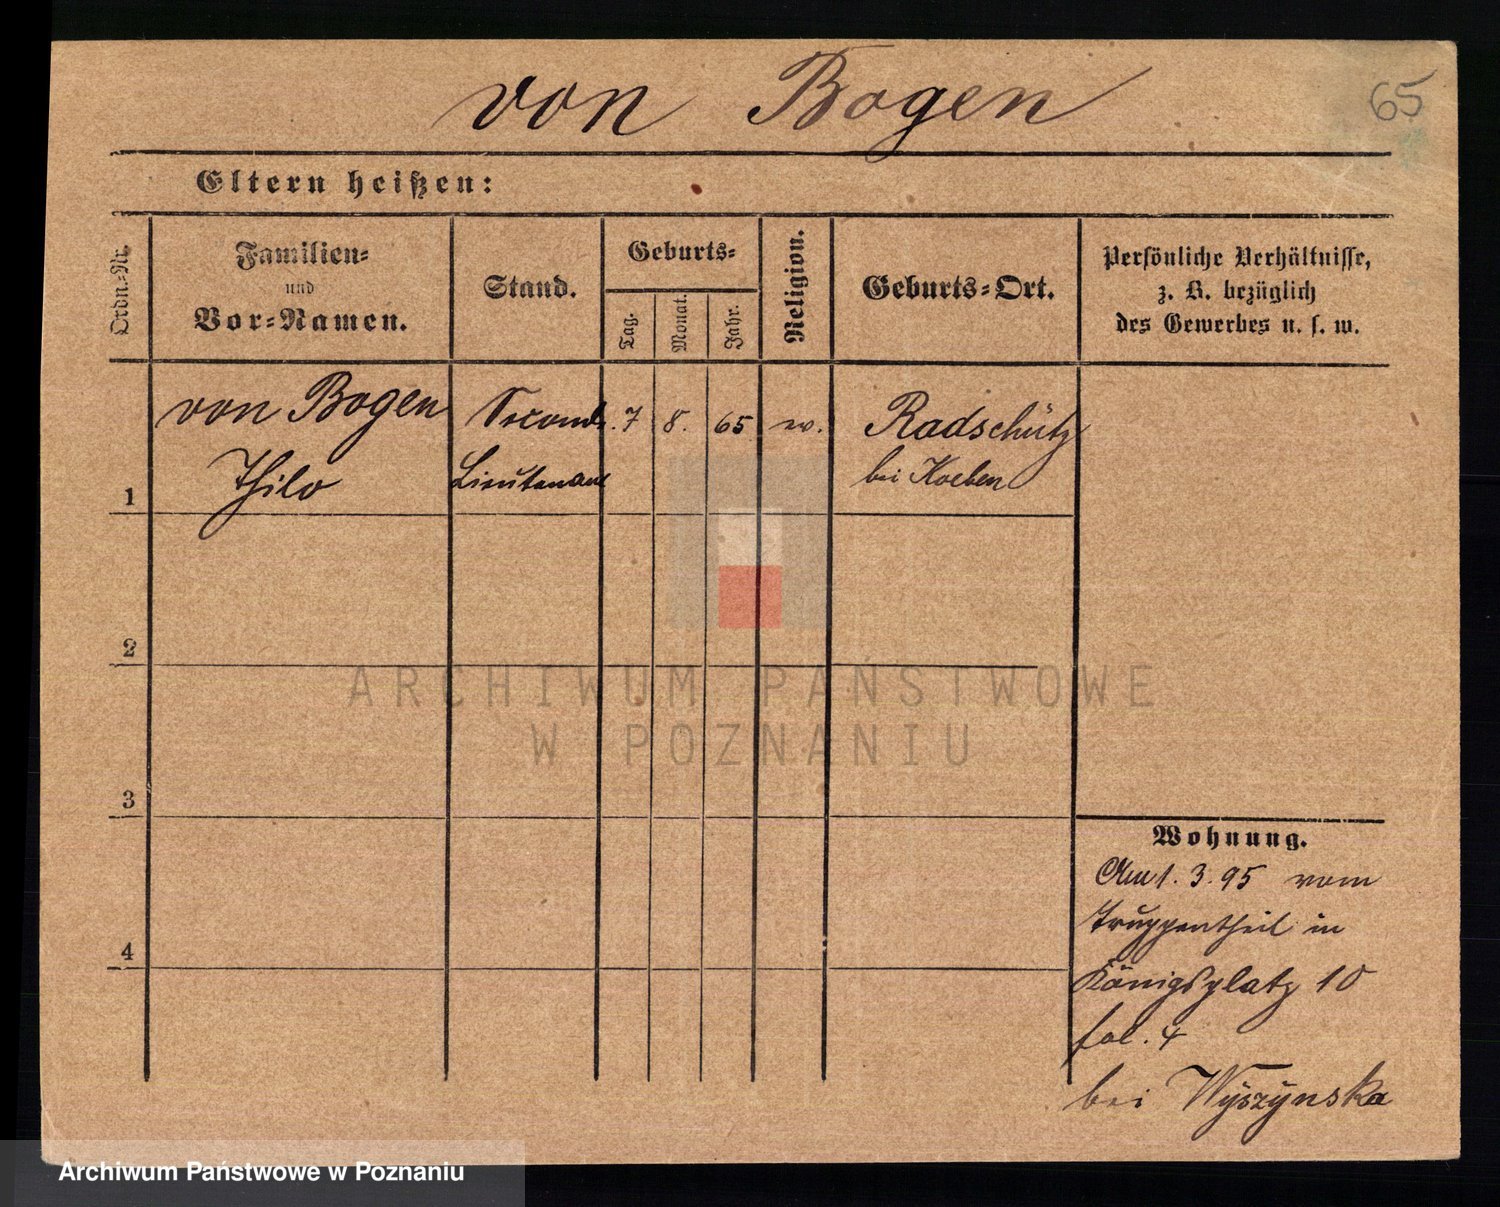 von Bogen
65
Eltern heißen:
Ordn.-Nr.
Familien-
und
Vor-Namen.
Stand.
Geburts-
Tag.
Monat.
Jahr.
Religion.
Geburts-Ort.
Persönliche Verhältnisse,
z. B. bezüglich
des Gewerbes u. s. w.
1
von Bogen
Thilo
Second
Lieutenant
7
8.
65
ev.
Radschütz
bei Koeben
2
3
4
Wohnung.
Am 1. 3. 95 vom
Truppentheil in
Königsplatz 10
fol. 4
bei Wyszynska
ARCHIWUM PAŃSTWOWE
W POZNANIU
Archiwum Państwowe w Poznaniu